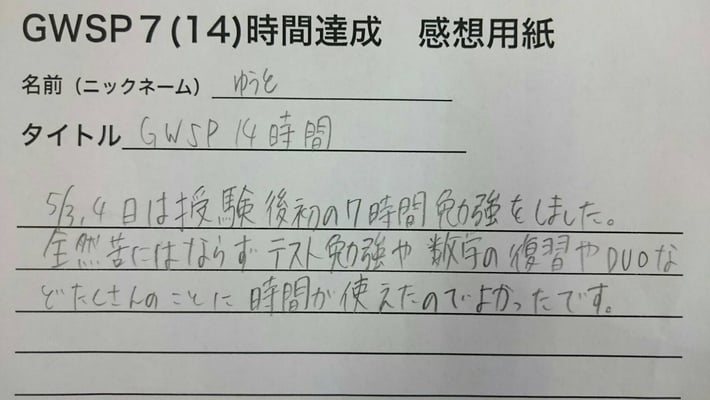 GWSP7(14)時間達成 感想用紙
名前(ニックネーム) ゆうと
タイトル GWSP 14時間
5/3,4日は授験後初の7時間勉強をしました。
全然苦にはならずテスト勉強や数学の復習やDUOな
どたくさんのことに時間が使えたのでよかったです。